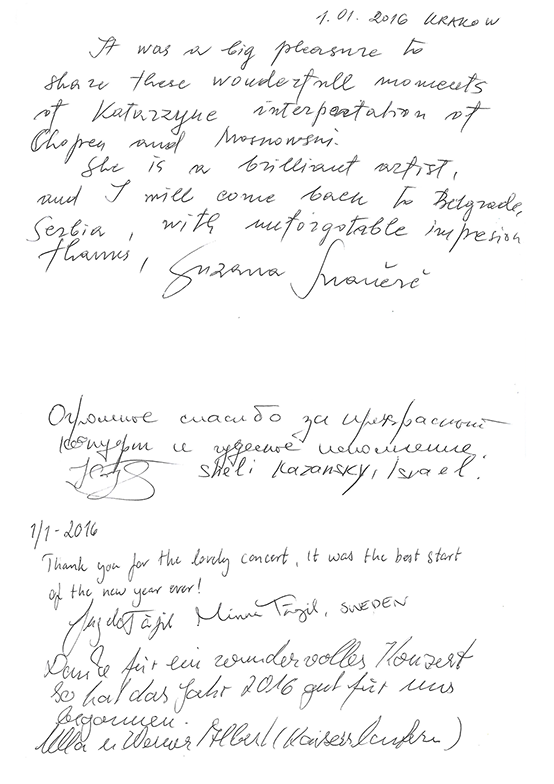 1.01. 2016 KRAKOW
It was a big pleasure to
share these wonderfull moments
of Katarzyne interpretation of
Chopen and
She is a brilliant artist,
and I will come back to Belgrade,
Serbia, with unforgotable impresion
thanks,
Suzana
Огромное спасибо за прекрасный
концерт и чудесное исполнение.
Sheli Kazansky, Israel.
1/1-2016
Thank you for the lovely concert, it was the best start
of the new year ever!
SWEDEN
Danke für ein wundervolles Konzert
So hat das Jahr 2016 gut für uns
begonnen.
Ulla u Werner Albert (Kaiserslautern)